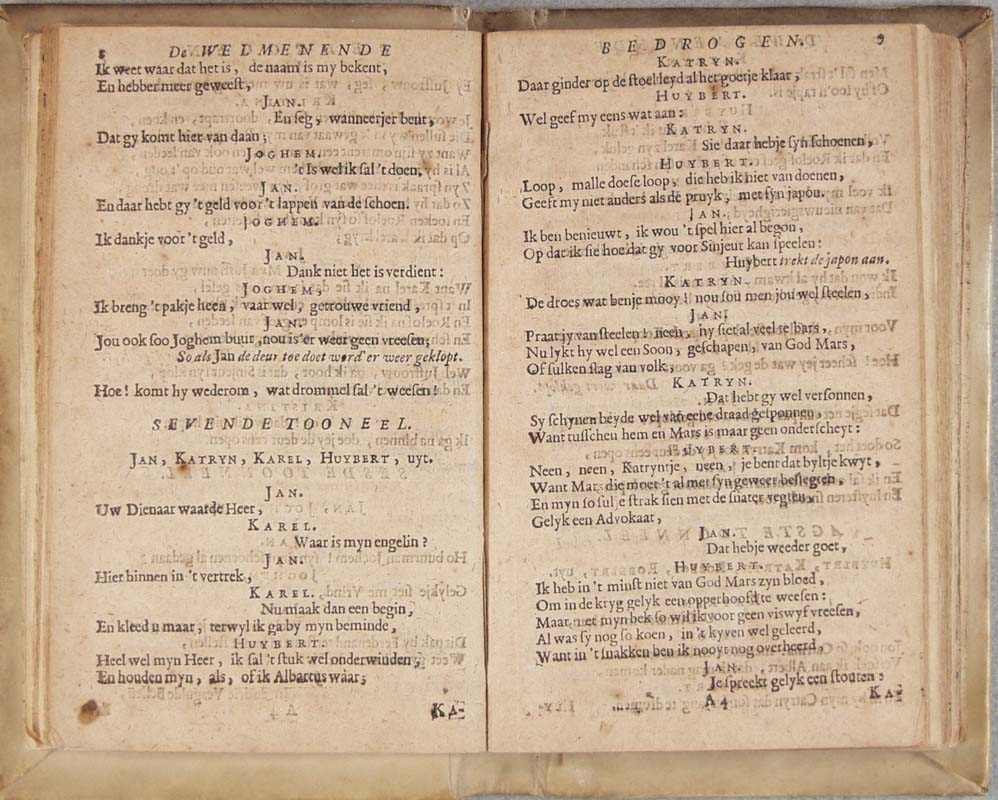 8 De WELMENENDE
Ik weet waar dat het is, de naam is my bekent,
En hebber meer geweest,
JAN.
En seg, wanneerjer bent,
Dat gy komt hier van daan;
JOGHEM.
't Is wel ik sal 't doen,
JAN.
En daar hebt gy 't geld voor 't lappen van de schoen.
JOGHEM.
Ik dankje voor 't geld,
JAN.
Dank niet het is verdient:
JOGHEM,
Ik breng 't pakje heen, vaar wel, getrouwe vriend,
JAN.
Jou ook soo Joghem buur, nou is'er weer geen vreesen;
So als Jan de deur toe doet word'er weer geklopt.
Hoe! komt hy wederom, wat drommel sal 't weesen!
SEVENDE TOONEEL.
JAN, KATRYN, KAREL, HUYBERT, uyt.
JAN.
Uw Dienaar waarde Heer,
KAREL.
Waar is myn engelin?
JAN.
Hier binnen in 't vertrek,
KAREL.
Nu maak dan een begin,
En kleed u maar, terwyl ik ga by myn beminde,
HUYBERT.
Heel wel myn Heer, ik sal 't stuk wel onderwinden,
En houden myn, als, of ik Albartus waar;
KA-
BEDROGEN. 9
KATRYN.
Daar ginder op de stoel leyd al het goetje klaar,
HUYBERT.
Wel geef my eens wat aan:
KATRYN.
Sie daar hebje syn schoenen,
HUYBERT.
Loop, malle doese loop, die heb ik niet van doenen,
Geeft my niet anders als de pruyk, met syn japon.
JAN.
Ik ben benieuwt, ik wou 't spel hier al begon,
Op dat ik sie hoe dat gy voor Sinjeur kan speelen:
Huybert trekt de japon aan.
KATRYN.
De droes wat benje mooy! nou sou men jou wel steelen,
JAN.
Praat jy van steelen! neen, hy siet al veel te bars,
Nu lykt hy wel een Soon, geschapen, van God Mars,
Of sulken slag van volk,
KATRYN.
Dat hebt gy wel versonnen,
Sy schynen beyde wel van eene draad gesponnen,
Want tusschen hem en Mars is maar geen onderscheyt:
HUYBERT.
Neen, neen, Katryntje, neen, je bent dat byltje kwyt,
Want Mars die moet 't al met syn geweer beslegten,
En myn so sul je strak sien met de snater vegten,
Gelyk een Advokaat,
JAN.
Dat hebje weeder goet,
HUYBERT.
Ik heb in 't minst niet van God Mars zyn bloed,
Om in de kryg gelyk een opperhoofd te weesen:
Maar met myn bek so wil ik voor geen viswyf vreesen,
Al was sy nog so koen, in 't kyven wel geleerd,
Want in 't snakken ben ik nooyt nog overheerd,
JAN.
Je spreekt gelyk een stouten:
A 4 KA-